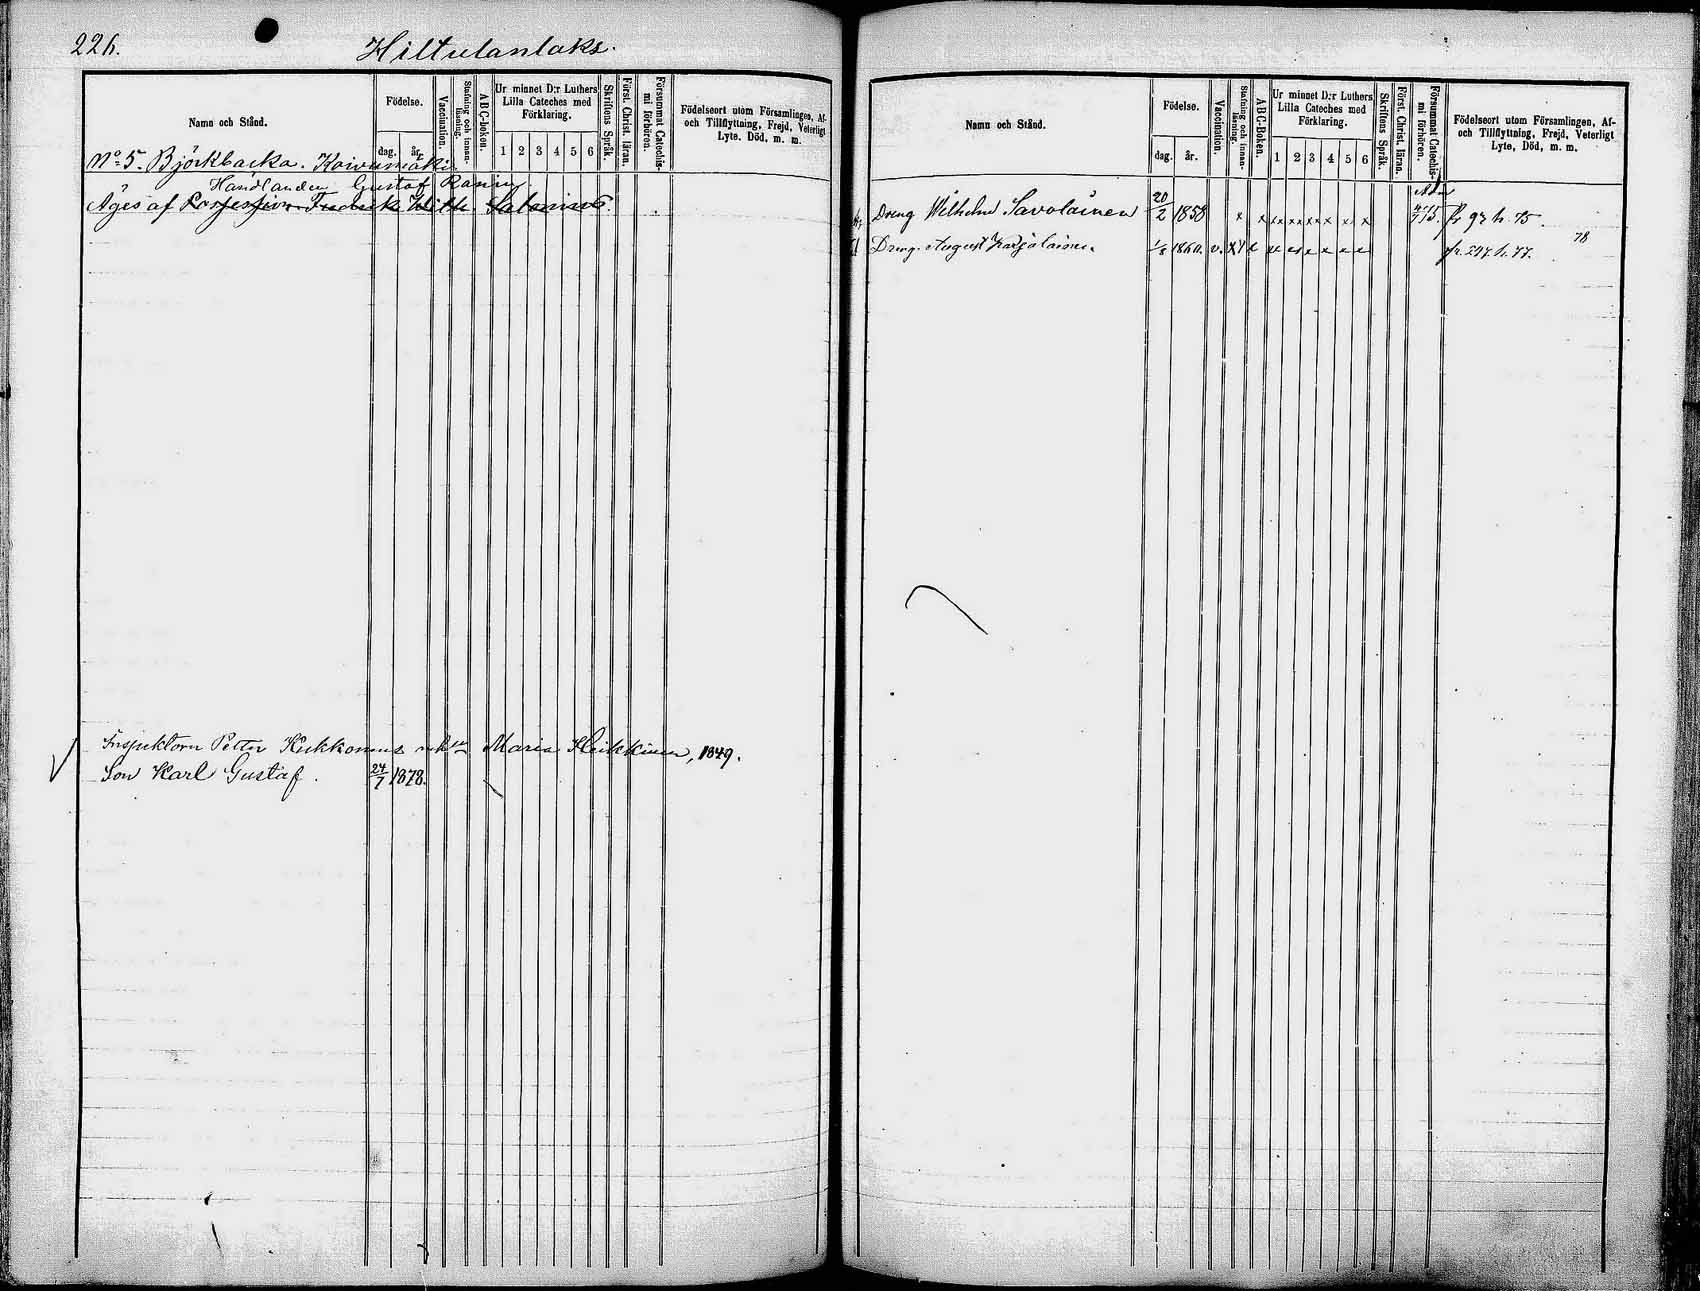 226.
Hiltulanlaks.
Namn och Stånd.
Födelse.
dag. år.
Vaccination.
Stafning och innanläsning.
ABC-boken.
Ur minnet D:r Luthers Lilla Cateches med Förklaring.
1 2 3 4 5 6
Skriftens Språk.
Först. Christ. läran.
Försummat Catechismi förhören.
Födelseort utom Församlingen, Af- och Tillflyttning, Frejd, Veterligt Lyte, Död, m. m.
No 5. Björkbacka. Koivumäki
Handlanden Gustaf Ranin
Äges af Possession Fredrik Wilh. Salonius.
Inspektorn Petter Kukkonens Maria Heikkinen, 1849.
Son Karl Gustaf. 24/7 1878.
Namn och Stånd.
Födelse.
dag. år.
Vaccination.
Stafning och innanläsning.
ABC-Boken.
Ur minnet D:r Luthers Lilla Cateches med Förklaring.
1 2 3 4 5 6
Skriftens Språk.
Först. Christ. läran.
Försummat Catechismi förhören.
Födelseort utom Församlingen, Af- och Tillflyttning, Frejd, Veterligt Lyte, Död, m. m.
Dreng Wilhelm Savolainen 20/2 1858 x x x x x x x x x x fr 93 h. 75.
Dreng August Karjalainen 1/8 1860. v. fr. 247. h. 77. 78